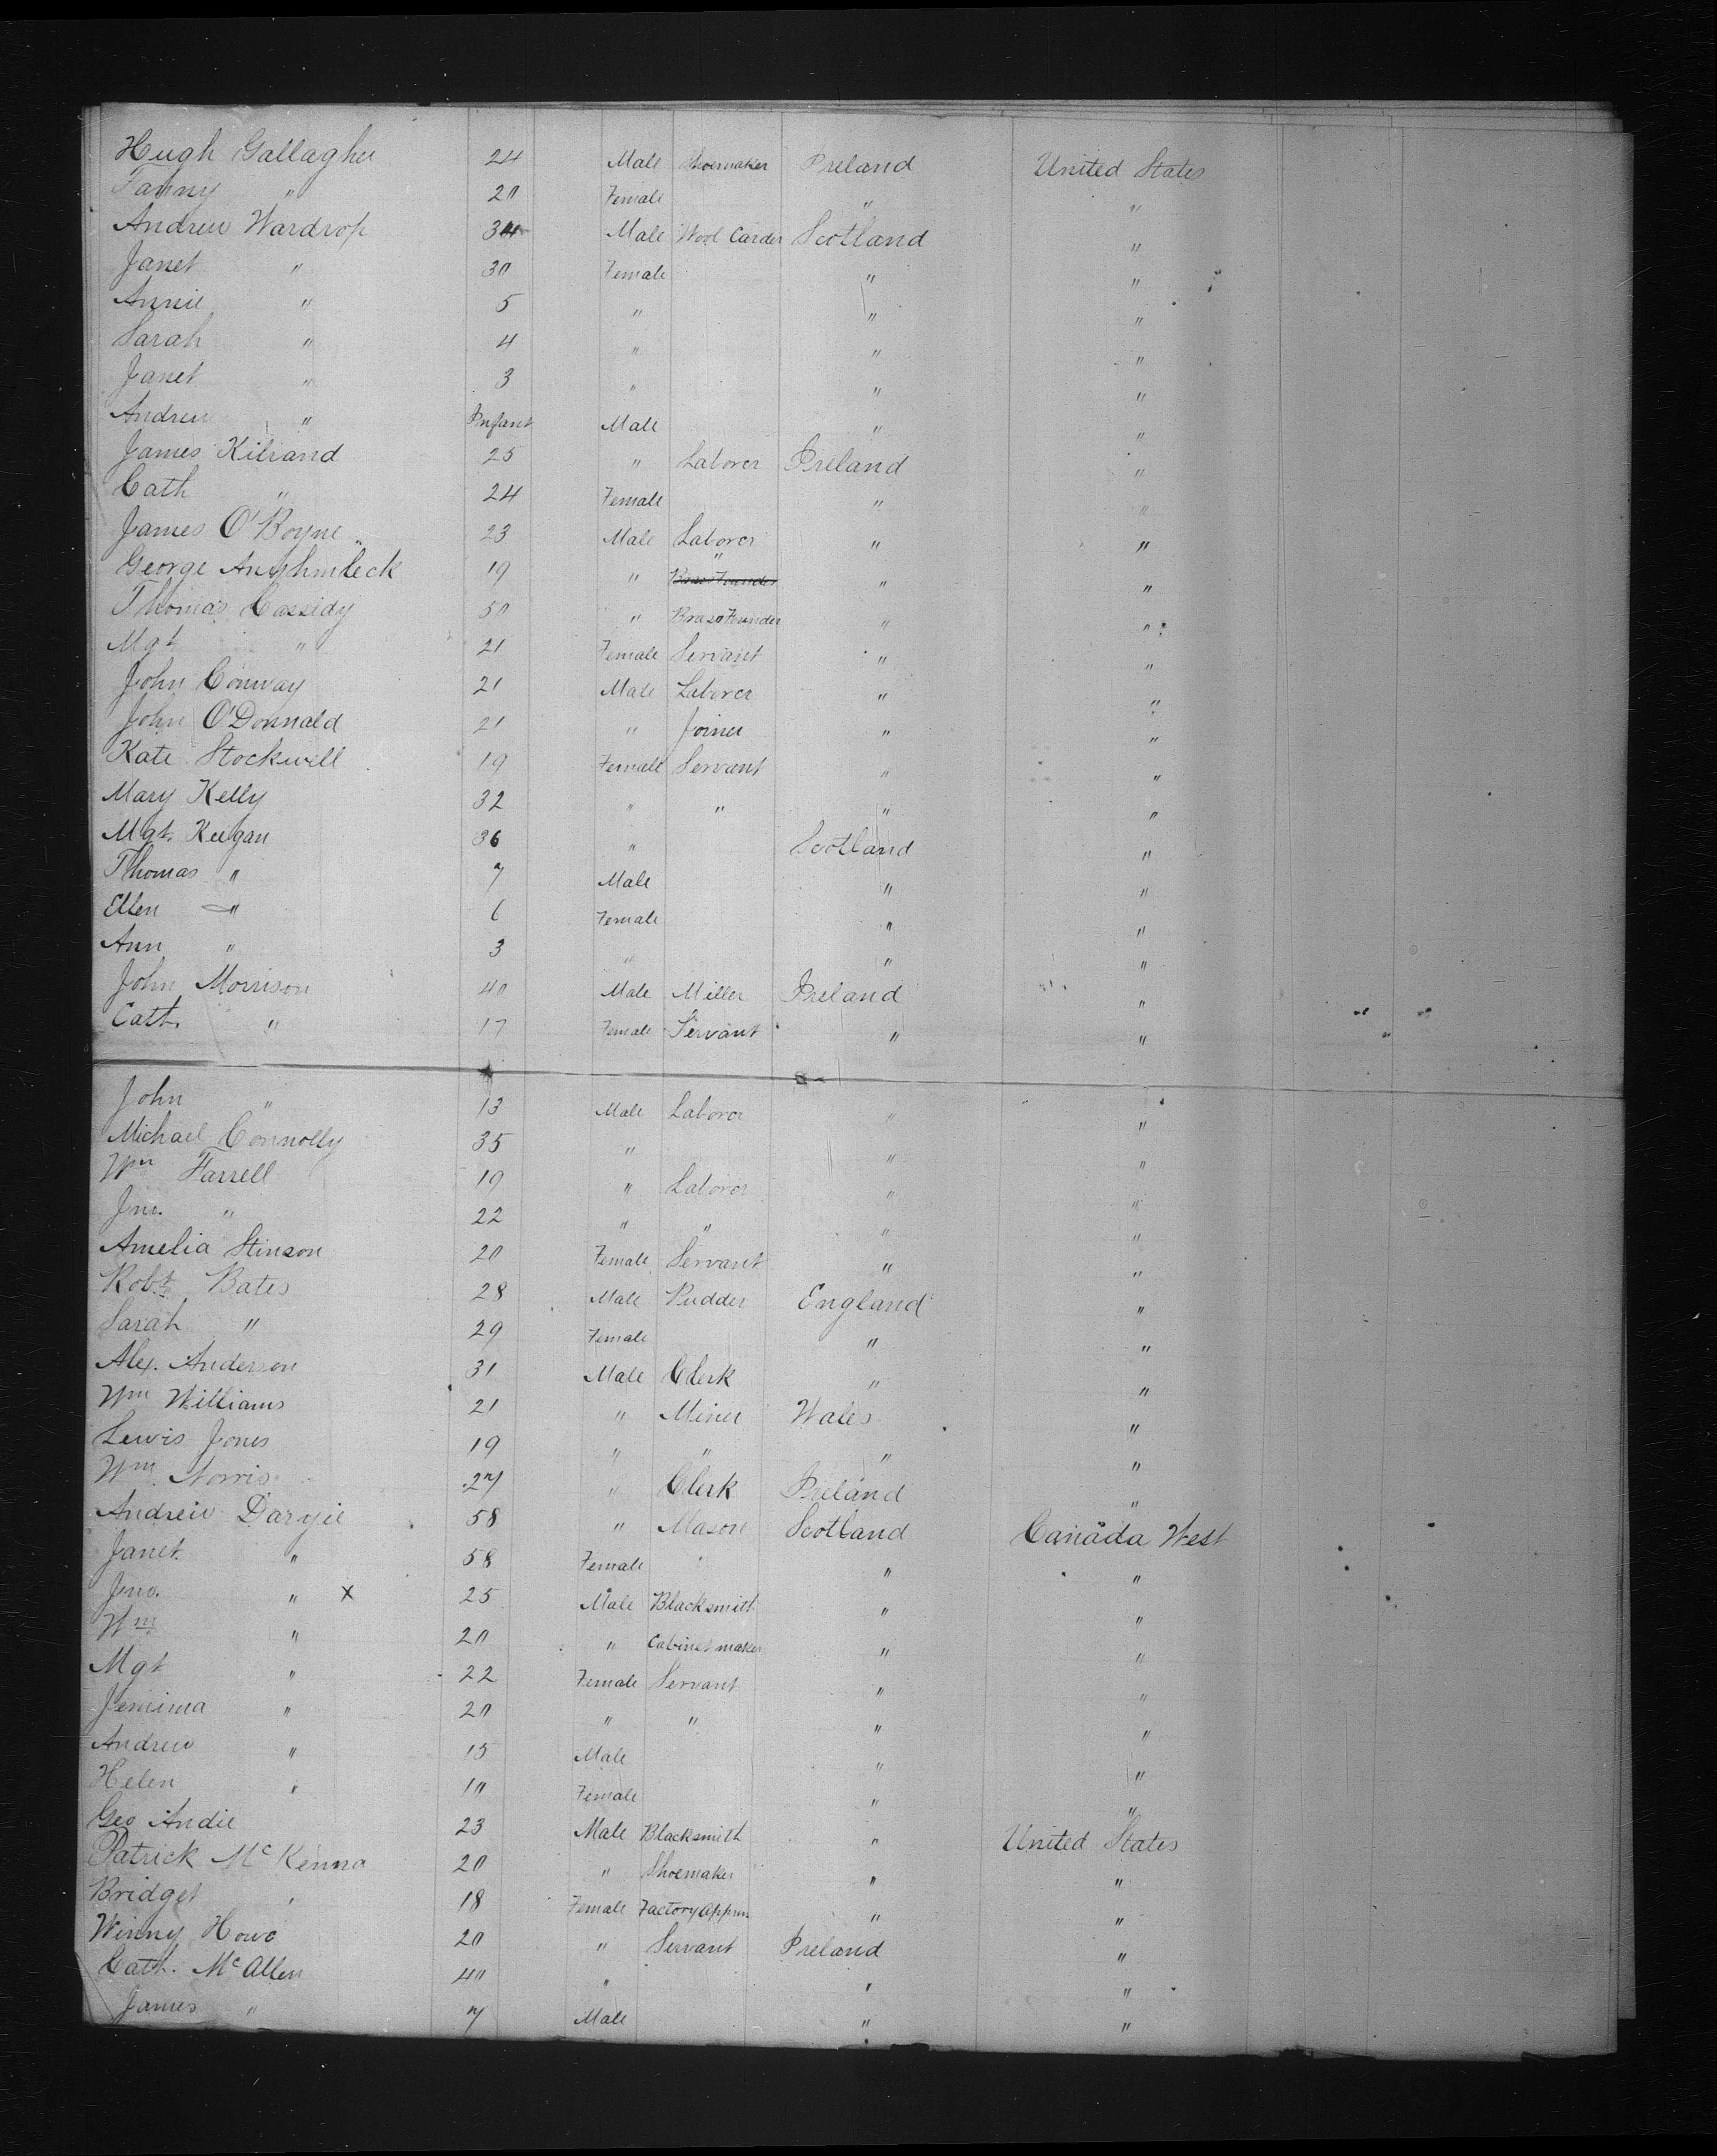 Hugh Gallagher 24 Male Shoemaker Ireland United States
Fanny " 20 Female " "
Andrew Wardrop 34 Male Wool Carder Scotland "
Janet " 30 Female " "
Annie " 5 " " "
Sarah " 4 " " "
Janet " 3 " " "
Andrew " Infant Male " "
James Kilrand 25 " Laborer Ireland "
Cath " 24 Female " "
James O'Boyne " 23 Male Laborer " "
George 19 " " Brass Founder " "
Thomas Cassidy 50 " Brass Founder " "
Mgt " 21 Female Servant " "
John Conway 21 Male Laborer " "
John O'Donnald 21 " Joiner " "
Kate Stockwell 19 Female Servant " "
Mary Kelly 32 " " " "
Mgt. Keegan 36 " Scotland "
Thomas " 7 Male " "
Ellen " 6 Female " "
Ann " 3 " " "
John Morrison 40 Male Miller Ireland "
Cath. " 17 Female Servant " "
John " 13 Male Laborer " "
Michael Connolly 35 " " "
Wm Farrell 19 " Laborer " "
Jno. " 22 " " " "
Amelia Stinson 20 Female Servant " "
Robt. Bates 28 Male Pudder England "
Sarah " 29 Female " "
Alex. Anderson 31 Male Clerk " "
Wm Williams 21 " Miner Wales "
Lewis Jones 19 " " " "
Wm Norris 27 " Clerk Ireland "
Andrew Daryie 58 " Mason Scotland Canada West
Janet " 58 Female " "
Jno. " X 25 Male Blacksmith " "
Wm " 20 " Cabinet maker " "
Mgt " 22 Female Servant " "
Jemima " 20 " " " "
Andrew " 15 Male " "
Helen " 10 Female " "
Geo Andie 23 Male Blacksmith " United States
Patrick McKenna 20 " Shoemaker " "
Bridget " 18 Female Factory " "
Winny Howe 20 " Servant Ireland "
Cath. McAllen 40 " " "
James " 7 Male " "